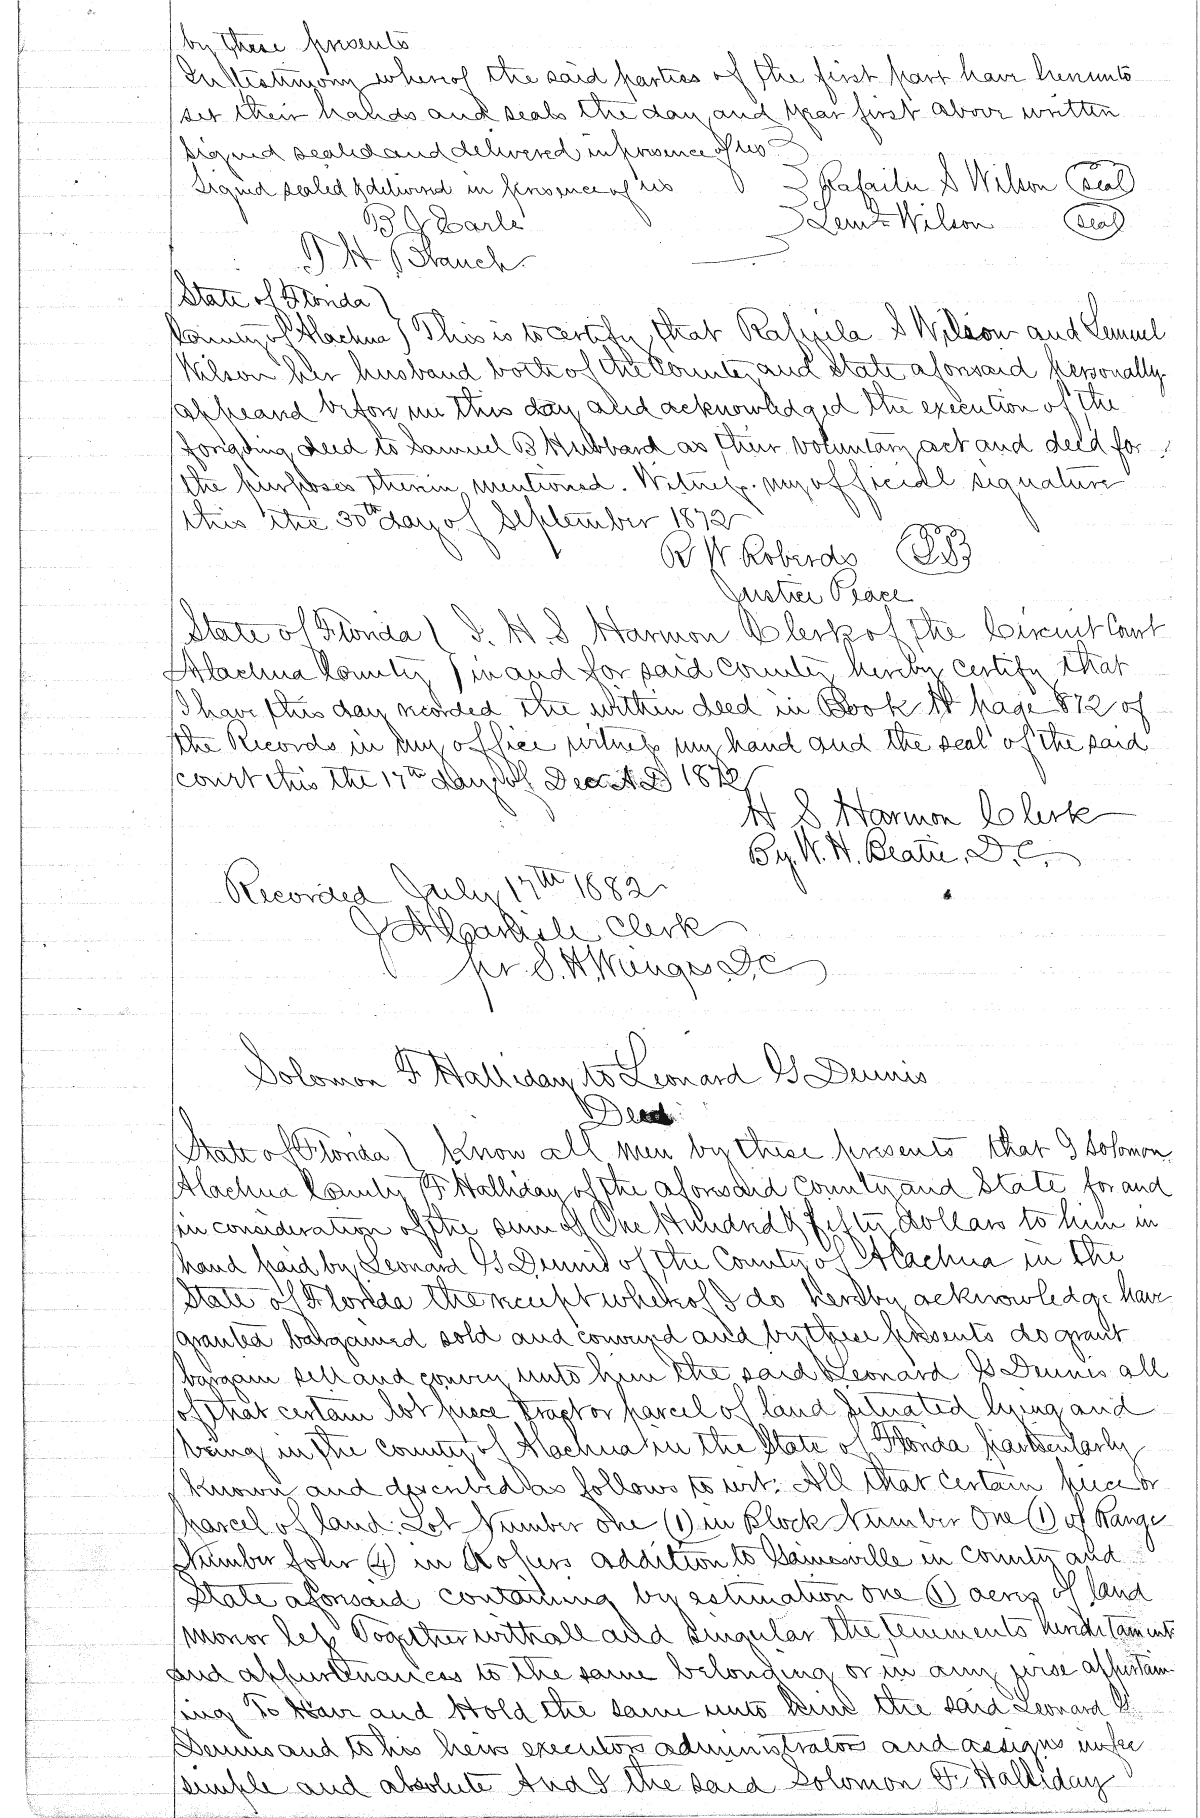 by these presents
In testimony whereof the said parties of the first part have hereunto
set their hands and seals the day and year first above written
Signed sealed and delivered in presence of us
Signed sealed & delivered in presence of us Rafaila S Wilson (seal)
B J Earle Leml Wilson (seal)
T H Branch
State of Florida)
County of Alachua) This is to certify that Rafaila S Wilson and Lemuel
Wilson her husband both of the County and State aforesaid personally
appeared before me this day and acknowledged the execution of the
forgoing deed to Samuel B Hubbard as their voluntary act and deed for
the purposes therein mentioned. Witness my official signature
this the 30th day of September 1872
R W Roberds
Justice Peace
State of Florida ) I. H. S Harmon Clerk of the Circuit Court
Alachua County ) in and for said County hereby certify that
I have this day recorded the within deed in Book page 872 of
the Records in my office witness my hand and the seal of the said
court this the 17th day of Dec A D 1872
H S Harmon Clerk
By. W. H. Beatie, D. C.
Recorded July 17th 1882
J A Carlisle Clerk
pr. S. H. Wienges D. C
Solomon F Halliday to Leonard G Dennis
Deed
State of Florida ) Know all men by these presents that I Solomon
Alachua County ) F Halliday of the aforesaid County and State for and
in consideration of the sum of One Hundred & fifty dollars to him in
hand paid by Leonard G Dennis of the County of Alachua in the
State of Florida the receipt whereof I do hereby acknowledge have
granted bargained sold and conveyed and by these presents do grant
bargain sell and convey unto him the said Leonard G Dennis all
of that certain lot piece tract or parcel of land situated lying and
being in the county of Alachua in the State of Florida particularly
known and described as follows to wit: All that certain piece or
parcel of land. Lot Number one (1) in Block Number One (1) of Range
Number four (4) in Ropers addition to Gainesville in county and
State aforesaid containing by estimation one (1) acres of land
mor or less Together with all and singular the tenements hereditaments
and appurtenances to the same belonding or in any wise appurtain-
ing To Have and Hold the same unto him the said Leonard G.
Dennis and to his heirs executors administrators and assigns in fee
simple and absolute And I the said Solomon F. Halliday